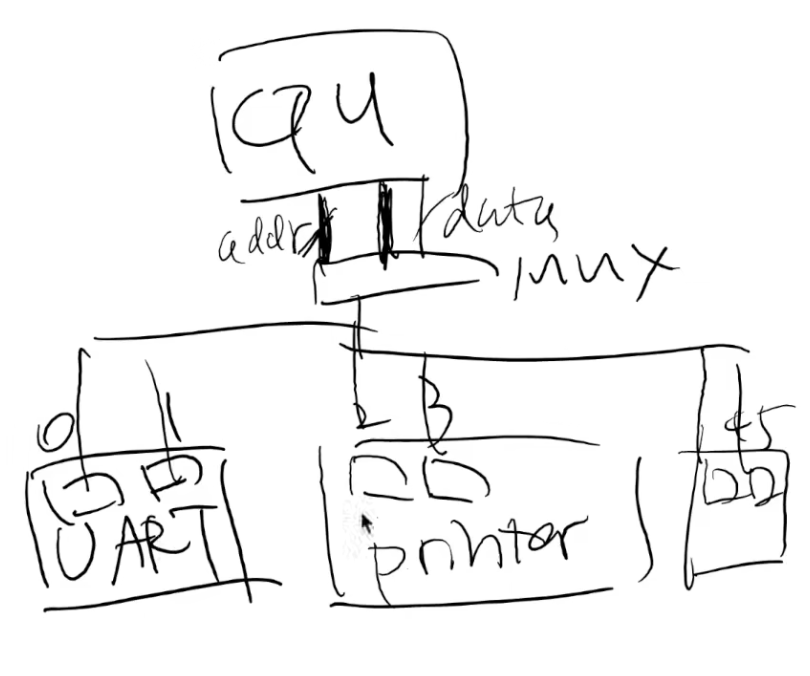 CPU
addr data
mux
0 1 2 3 45
UART printer